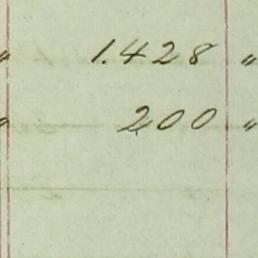 " 1.428 "
" 200 "